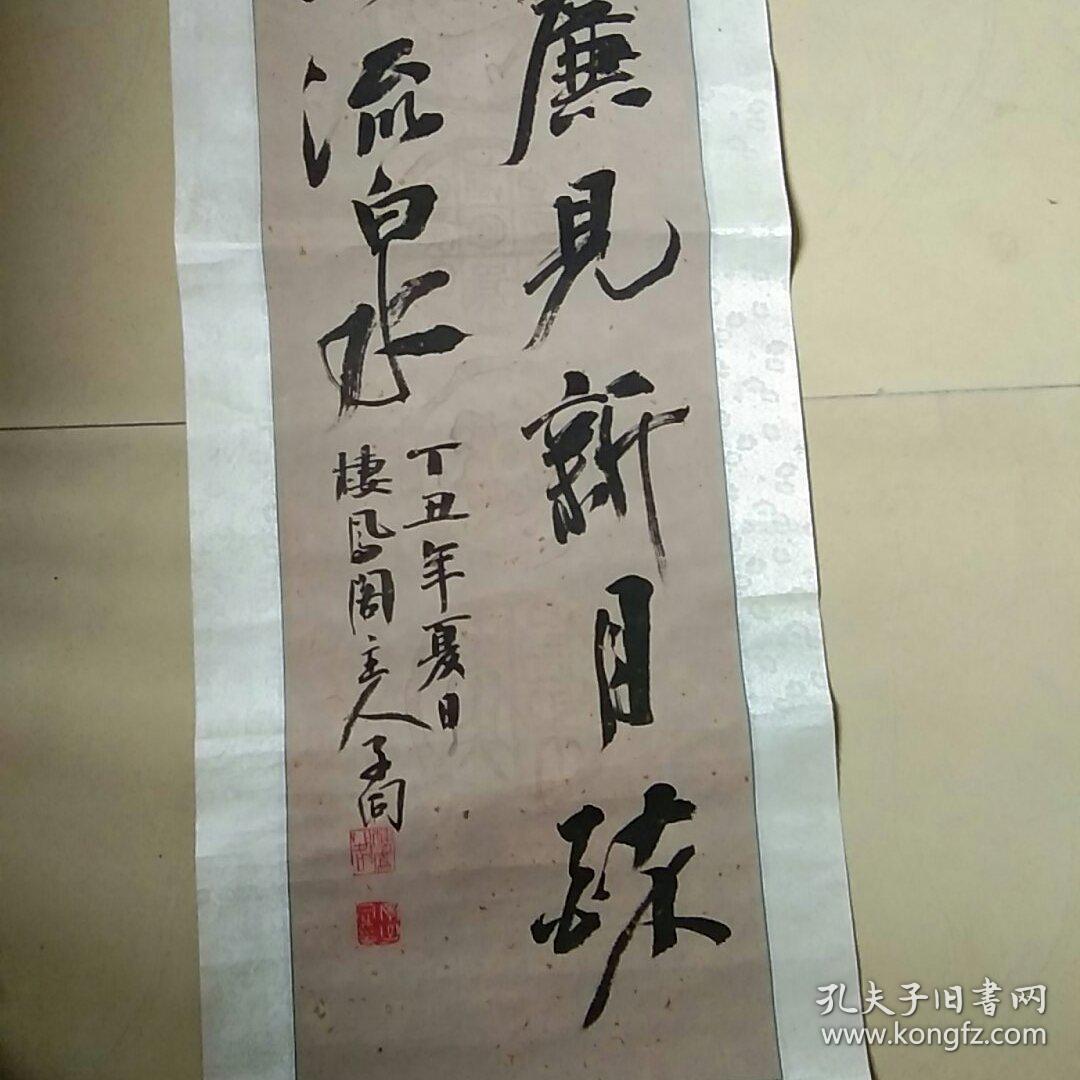 廉見新月疎
流泉水
丁丑年夏日
棲鳳閣主人子同
孔夫子旧書网
www.kongfz.com